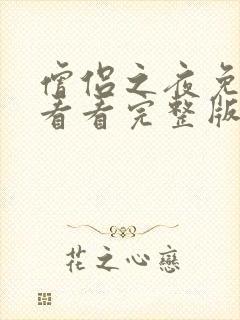 僧侣之夜免
看看完整版
花之心戀